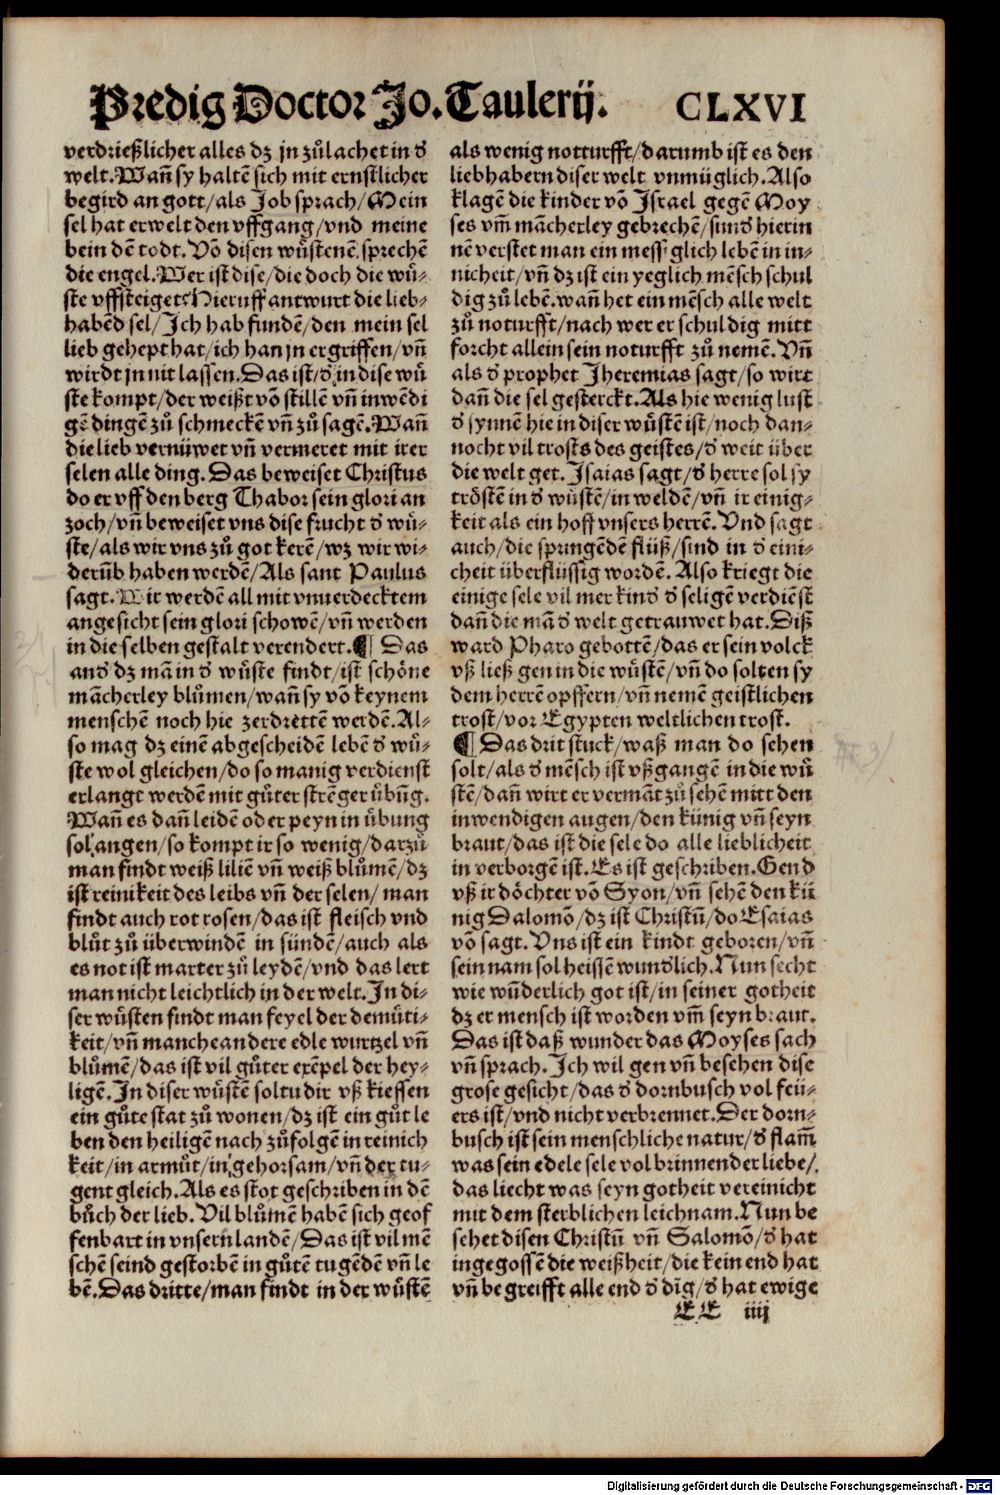 Predig Doctor Jo. Taulerij. CLXVI
verdrießlicher alles dz jn zůlachet in d'
welt. Wañ sy haltē sich mit ernstlicher
begird an gott/als Job sprach/Mein
sel hat erwelt den vffgang/vnd meine
bein dē todt. Vō disen wůstenē sprechē
die engel. Wer ist dise/die doch die wů⸗
ste vffsteiget? Hieruff antwurt die lieb⸗
habēd sel/Ich hab fundē/den mein sel
lieb gehept hat/ich han jn ergriffen/vñ
wird jn nit lassen. Das ist/d' in dise wů
ste kompt/der weißt vō stillē vñ inwēdi
gē dingē zů schmeckē vñ zů sagē. Wañ
die lieb vernüwet vñ vermeret mit irer
selen alle ding. Das beweiset Christus
do er vff den berg Thabor sein glori an
zoch/vñ beweiset vns dise frucht d' wů⸗
ste/als wir vns zů got kerē/wz wir wi⸗
derūb haben werdē/Als sant Paulus
sagt. Wir werdē all mit vnuerdecktem
angesicht sein glori schowē/vñ werden
in die selben gestalt verendert. ¶ Das
and' dz mā in d' wůste findt/ist schöne
mācherley blůmen/wañ sy vō keynem
menschē noch hie zerdrettē werdē. Al⸗
so mag dz einē abgescheidē lebē d' wů⸗
ste wol gleichen/do so manig verdienst
erlangt werdē mit gůter strēger übūg.
Wañ es dañ leidē oder peyn in übung
sol angen/so kompt ir so wenig/darzů
man findt weiß liliē vñ weiß blůmē/dz
ist reinikeit des leibs vñ der selen/ man
findt auch rot rosen/das ist fleisch vnd
blůt zů überwindē in sündē/auch als
es not ist marter zů leydē/vnd das lert
man nicht leichtlich in der welt. In di⸗
ser wůsten findt man feyel der demůti⸗
keit/vñ manche andere edle wurtzel vñ
blůmē/das ist vil gůter exēpel der hey⸗
ligē. In diser wůstē soltu dir vß kiessen
ein gůte stat zů wonen/dz ist ein gůt le
ben den heiligē nach zůfolgē in reinich
keit/in armůt/in gehorsam/vñ der tu⸗
gent gleich. Als es stot geschriben in dē
bůch der lieb. Vil blůmē habē sich geof
fenbart in vnsern landē/Das ist vil mē
schē seind gestorbē in gůtē tugēdē vñ le
bē. Das dritte/man findt in der wůstē
als wenig notturfft/darumb ist es den
liebhabern diser welt vnmüglich. Also
klagē die kinder vō Israel gegē Moy
ses vm̄ mācherley gebrechē/sund' hierin
nē verstet man ein messiglich lebē in in⸗
nicheit/vñ dz ist ein yeglich mēsch schul
dig zů lebē. wañ het ein mēsch alle welt
zů noturfft/nach wer er schuldig mitt
forcht allein sein noturfft zů nemē. Vñ
als d' prophet Jheremias sagt/so wirt
dañ die sel gesterckt. Als hie wenig lust
d' synnē hie in diser wůstē ist/noch dan⸗
nocht vil trosts des geistes/d' weit über
die welt get. Isaias sagt/d' herre sol sy
tröstē in d' wůstē/in weldē/vñ ir einig⸗
keit als ein hoff vnsers herrē. Vnd sagt
auch/die springēdē flüß/sind in d' eini⸗
cheit überflüssig wordē. Also kriegt die
einige sele vil mer kind' d' seligē verdiēst
dañ die mā d' welt getrauwet hat. Diß
ward Pharo gebottē/das er sein volck
vß ließ gen in die wůstē/vñ do solten sy
dem herrē opffern/vñ nemē geistlichen
trost/vor Egypten weltlichen trost.
¶ Das drit stuck/waß man do sehen
solt/als d' mēsch ist vßgangē in die wů
stē/dañ wirt er vermāt zů sehē mitt den
inwendigen augen/den künig vñ seyn
braut/das ist die sele do alle lieblicheit
in verborgē ist. Es ist geschriben. Gend
vß ir döchter vō Syon/vñ sehē den kü
nig Salomō/dz ist Christū/do Esaias
vō sagt. Vns ist ein kindt geboren/vñ
sein nam sol heissē wund'lich. Nun secht
wie wūderlich got ist/in seiner gotheit
dz er mensch ist worden vm̄ seyn braut.
Das ist daß wunder das Moyses sach
vñ sprach. Ich wil gen vñ besehen dise
grose gesicht/das d' dornbusch vol feü⸗
ers ist/vnd nicht verbrennet. Der dorn⸗
busch ist sein menschliche natur/d' flam̄
was sein edele sele vol brinnender liebe/
das liecht was seyn gotheit vereinicht
mit dem sterblichen leichnam. Nun be
sehet disen Christū vñ Salomō/d' hat
ingegossē die weißheit/die kein end hat
vñ begreifft alle end d' dīg/d' hat ewige
EE iiij
Digitalisierung gefördert durch die Deutsche Forschungsgemeinschaft - DFG